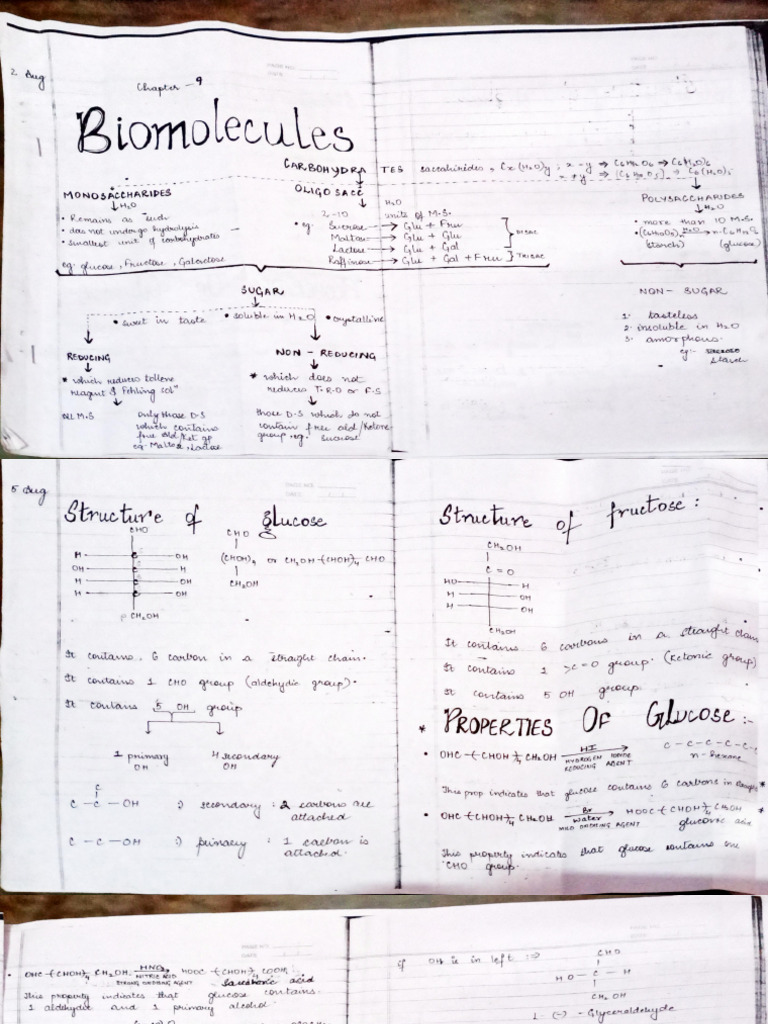 2 Aug
Chapter - 9
Biomolecules
CARBOHYDRATES saccahirides, Cx(H2O)y ; x = y ⇒ C6H12O6 ⇒ C6(H2O)6
x ≠ y ⇒ [C6H10O5] ⇒ C6(H2O)5
MONOSACCHARIDES
↓ H2O
• Remains as such
• does not undergo hydrolysis
• smallest unit of carbohydrates
eg: glucose, Fructose, Galactose
OLIGOSACC
↓ H2O
2-10 units of M.S.
• eg: Sucrose → Glu + Fru
Maltose → Glu + Glu
Lactose → Glu + Gal
DISAC
Raffinose → Glu + Gal + Fru ] TRISAC
POLYSACCHARIDES
↓ H2O
• more than 10 M.S.
• (C6H10O5)n H2O → n C6H12O6
(starch) (glucose)
SUGAR
• sweet in taste • soluble in H2O • crystalline
REDUCING
* which reduces tollens
reagent & Fehling solⁿ
ALL M.S
only those D.S
which contains
free ald/Ket gp
eg. Maltose, Lactose
NON - REDUCING
* which does not
reduces T.R or F.S
those D.S which do not
contain free ald/Ketone
group. eg. sucrose
NON - SUGAR
1. tasteless
2. insoluble in H2O
3. amorphous
eg:- starch
5 Aug
Structure of glucose
CHO
H — C — OH
OH — C — H
H — C — OH
H — C — OH
CH2OH
CHO
(CHOH)4 or CH2OH-(CHOH)4 CHO
CH2OH
It contains 6 carbon in a straight chain.
It contains 1 CHO group (aldehydic group).
It contans 5 OH group
1 primary OH
4 secondary OH
C
C — C — OH :) secondary : 2 carbons are
attached
C — C — OH :) primary : 1 carbon is
attached.
Structure of fructose:
CH2OH
C = O
HO — H
H — OH
H — OH
CH2OH
It contains 6 carbons in a straight chain
It contains 1 >C=O group. (Ketonic group)
It contains 5 OH group.
* PROPERTIES OF GLUCOSE :-
• OHC-(CHOH)4 CH2OH HI → C-C-C-C-C-C
HYDROGEN IODINE n-hexane
REDUCING AGENT
This prop indicates that glucose contains 6 carbons in *
• OHC-(CHOH)4 CH2OH Br water → HOOC-(CHOH)4 CH2OH *
MILD OXIDISING AGENT gluconic acid
This property indicates that glucose contains one
CHO group.
• OHC-(CHOH)4 CH2OH HNO3 → HOOC-(CHOH)4 COOH
NITRIC ACID
STRONG OXIDISING AGENT Saccharic acid
This property indicates that glucose contains
1 aldehyde and 1 primary alcohol.
if OH is in left :⇒
CHO
HO — C — H
CH2OH
L (-) - Glyceraldehyde